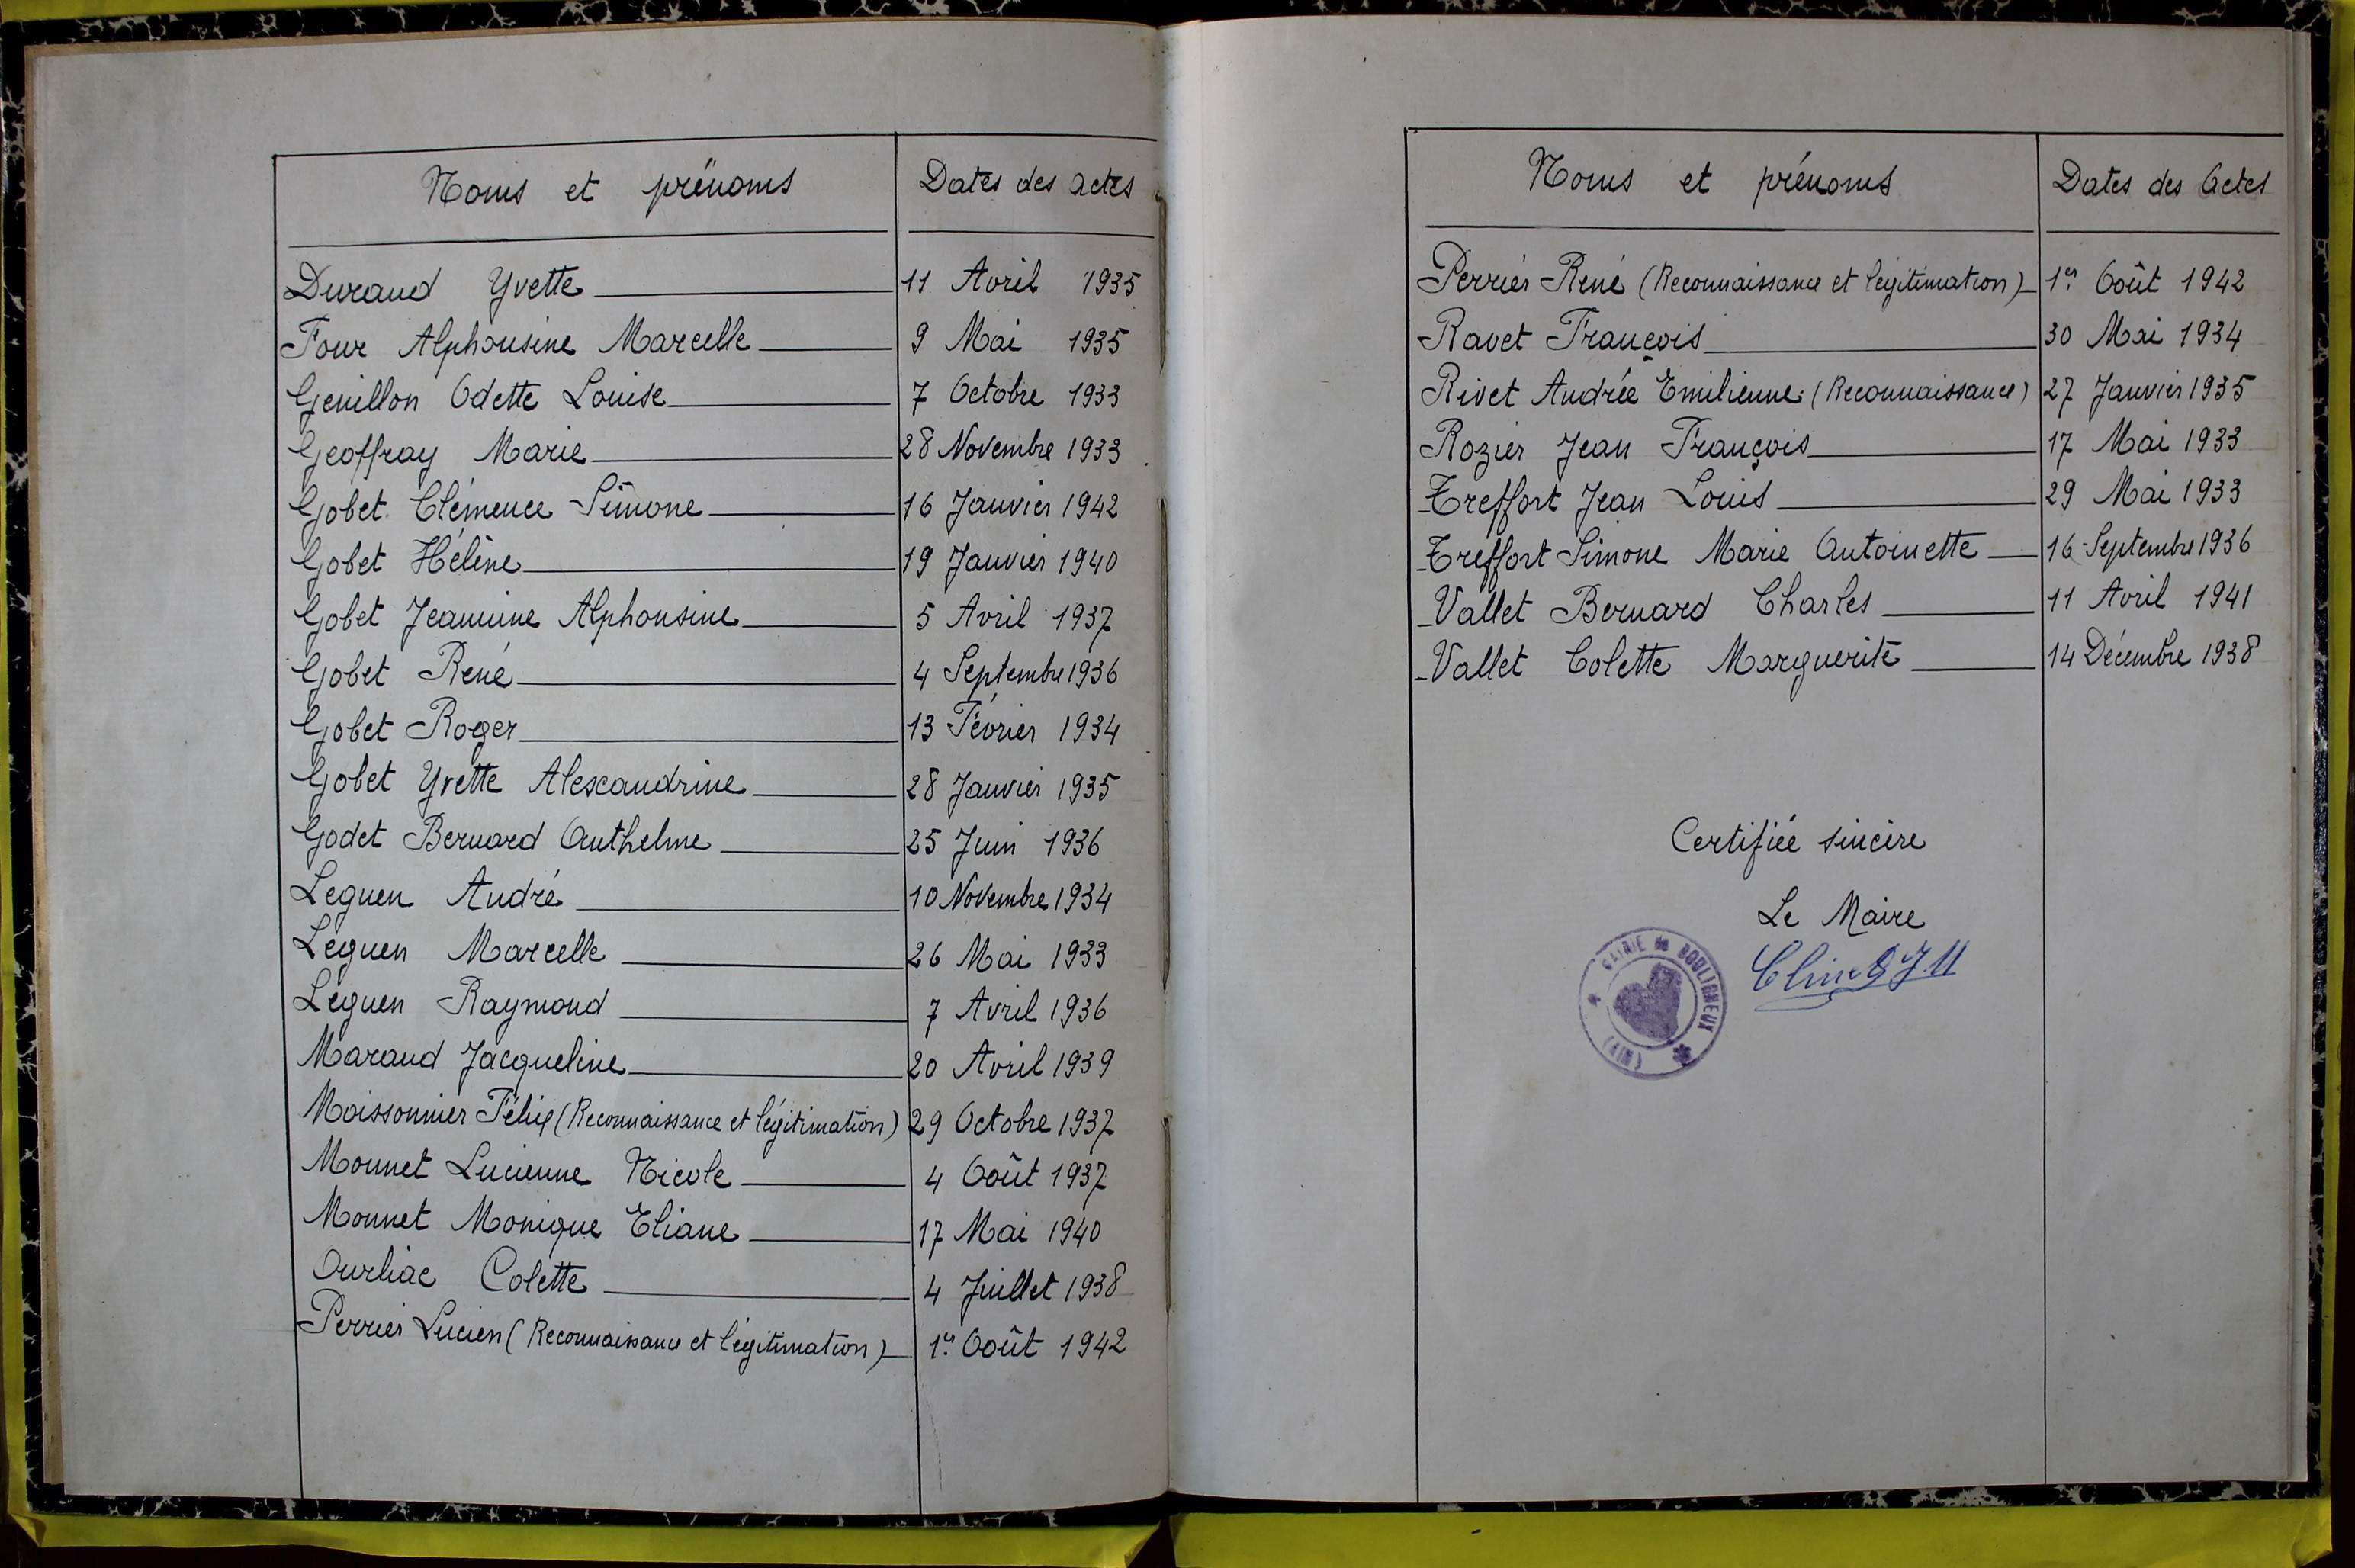 Noms et prénoms Dates des actes
Durand Yvette 11 Avril 1935
Four Alphonsine Marcelle 9 Mai 1935
Genillon Odette Louise 7 Octobre 1933
Geoffray Marie 28 Novembre 1933
Gobet Clémence Simone 16 Janvier 1942
Gobet Hélène 19 Janvier 1940
Gobet Jeannine Alphonsine 5 Avril 1937
Gobet René 4 Septembre 1936
Gobet Roger 13 Février 1934
Gobet Yvette Alexandrine 28 Janvier 1935
Godet Bernard Anthelme 25 Juin 1936
Leguen André 10 Novembre 1934
Leguen Marcelle 26 Mai 1933
Leguen Raymond 7 Avril 1936
Marand Jacqueline 20 Avril 1939
Moissonnier Félix (Reconnaissance et légitimation) 29 Octobre 1937
Monnet Lucienne Nicole 4 Août 1937
Monnet Monique Eliane 17 Mai 1940
Ourliac Colette 4 Juillet 1938
Perrier Lucien (Reconnaissance et légitimation) 1er Août 1942
Noms et prénoms Dates des Actes
Perrier René (Reconnaissance et légitimation) 1er Août 1942
Ravet François 30 Mai 1934
Rivet Andrée Emilienne (Reconnaissance) 27 Janvier 1935
Rozier Jean François 17 Mai 1933
Treffort Jean Louis 29 Mai 1933
Treffort Simone Marie Antoinette 16 Septembre 1936
Vallet Bernard Charles 11 Avril 1941
Vallet Colette Marguerite 14 Décembre 1938
Certifiée sincère
Le Maire
MAIRIE de BOULIGNEUX
(AIN)